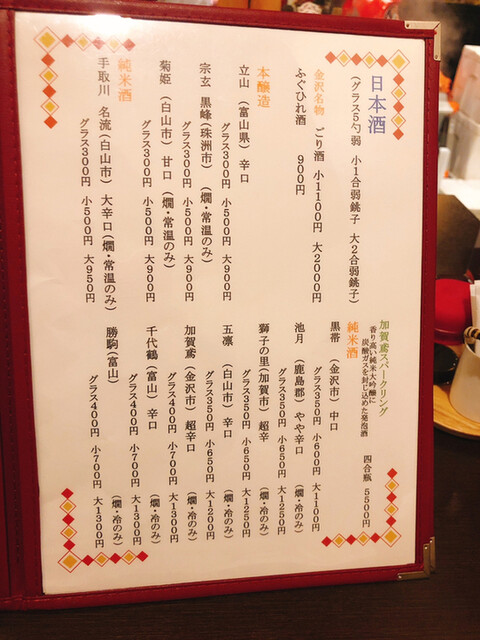 日本酒
(グラス5勺弱 小1合弱銚子 大2合弱銚子)
金沢名物 ごり酒 小1100円 大2000円
ふぐひれ酒 900円
本醸造
立山 (富山県) 辛口
グラス300円 小500円 大900円
宗玄 黒峰(珠洲市) (燗・常温のみ)
グラス300円 小500円 大900円
菊姫 (白山市) 甘口 (燗・常温のみ)
グラス300円 小500円 大900円
純米酒
手取川 名流(白山市) 大辛口(燗・常温のみ)
グラス300円 小500円 大950円
加賀鳶スパークリング
香り高い純米大吟醸に
炭酸ガスを封じ込めた発泡酒
四合瓶 5500円
純米酒
黒帯 (金沢市) 中口
グラス350円 小600円 大1100円
池月 (鹿島郡) やや辛口 (燗・冷のみ)
グラス350円 小650円 大1250円
獅子の里(加賀市) 超辛 (燗・冷のみ)
グラス350円 小650円 大1250円
五凛 (白山市) 辛口 (燗・冷のみ)
グラス350円 小650円 大1200円
加賀鳶 (金沢市) 超辛口 (燗・冷のみ)
グラス400円 小700円 大1300円
千代鶴(富山) 辛口 (燗・冷のみ)
グラス400円 小700円 大1300円
勝駒(富山) (燗・冷のみ)
グラス400円 小700円 大1300円